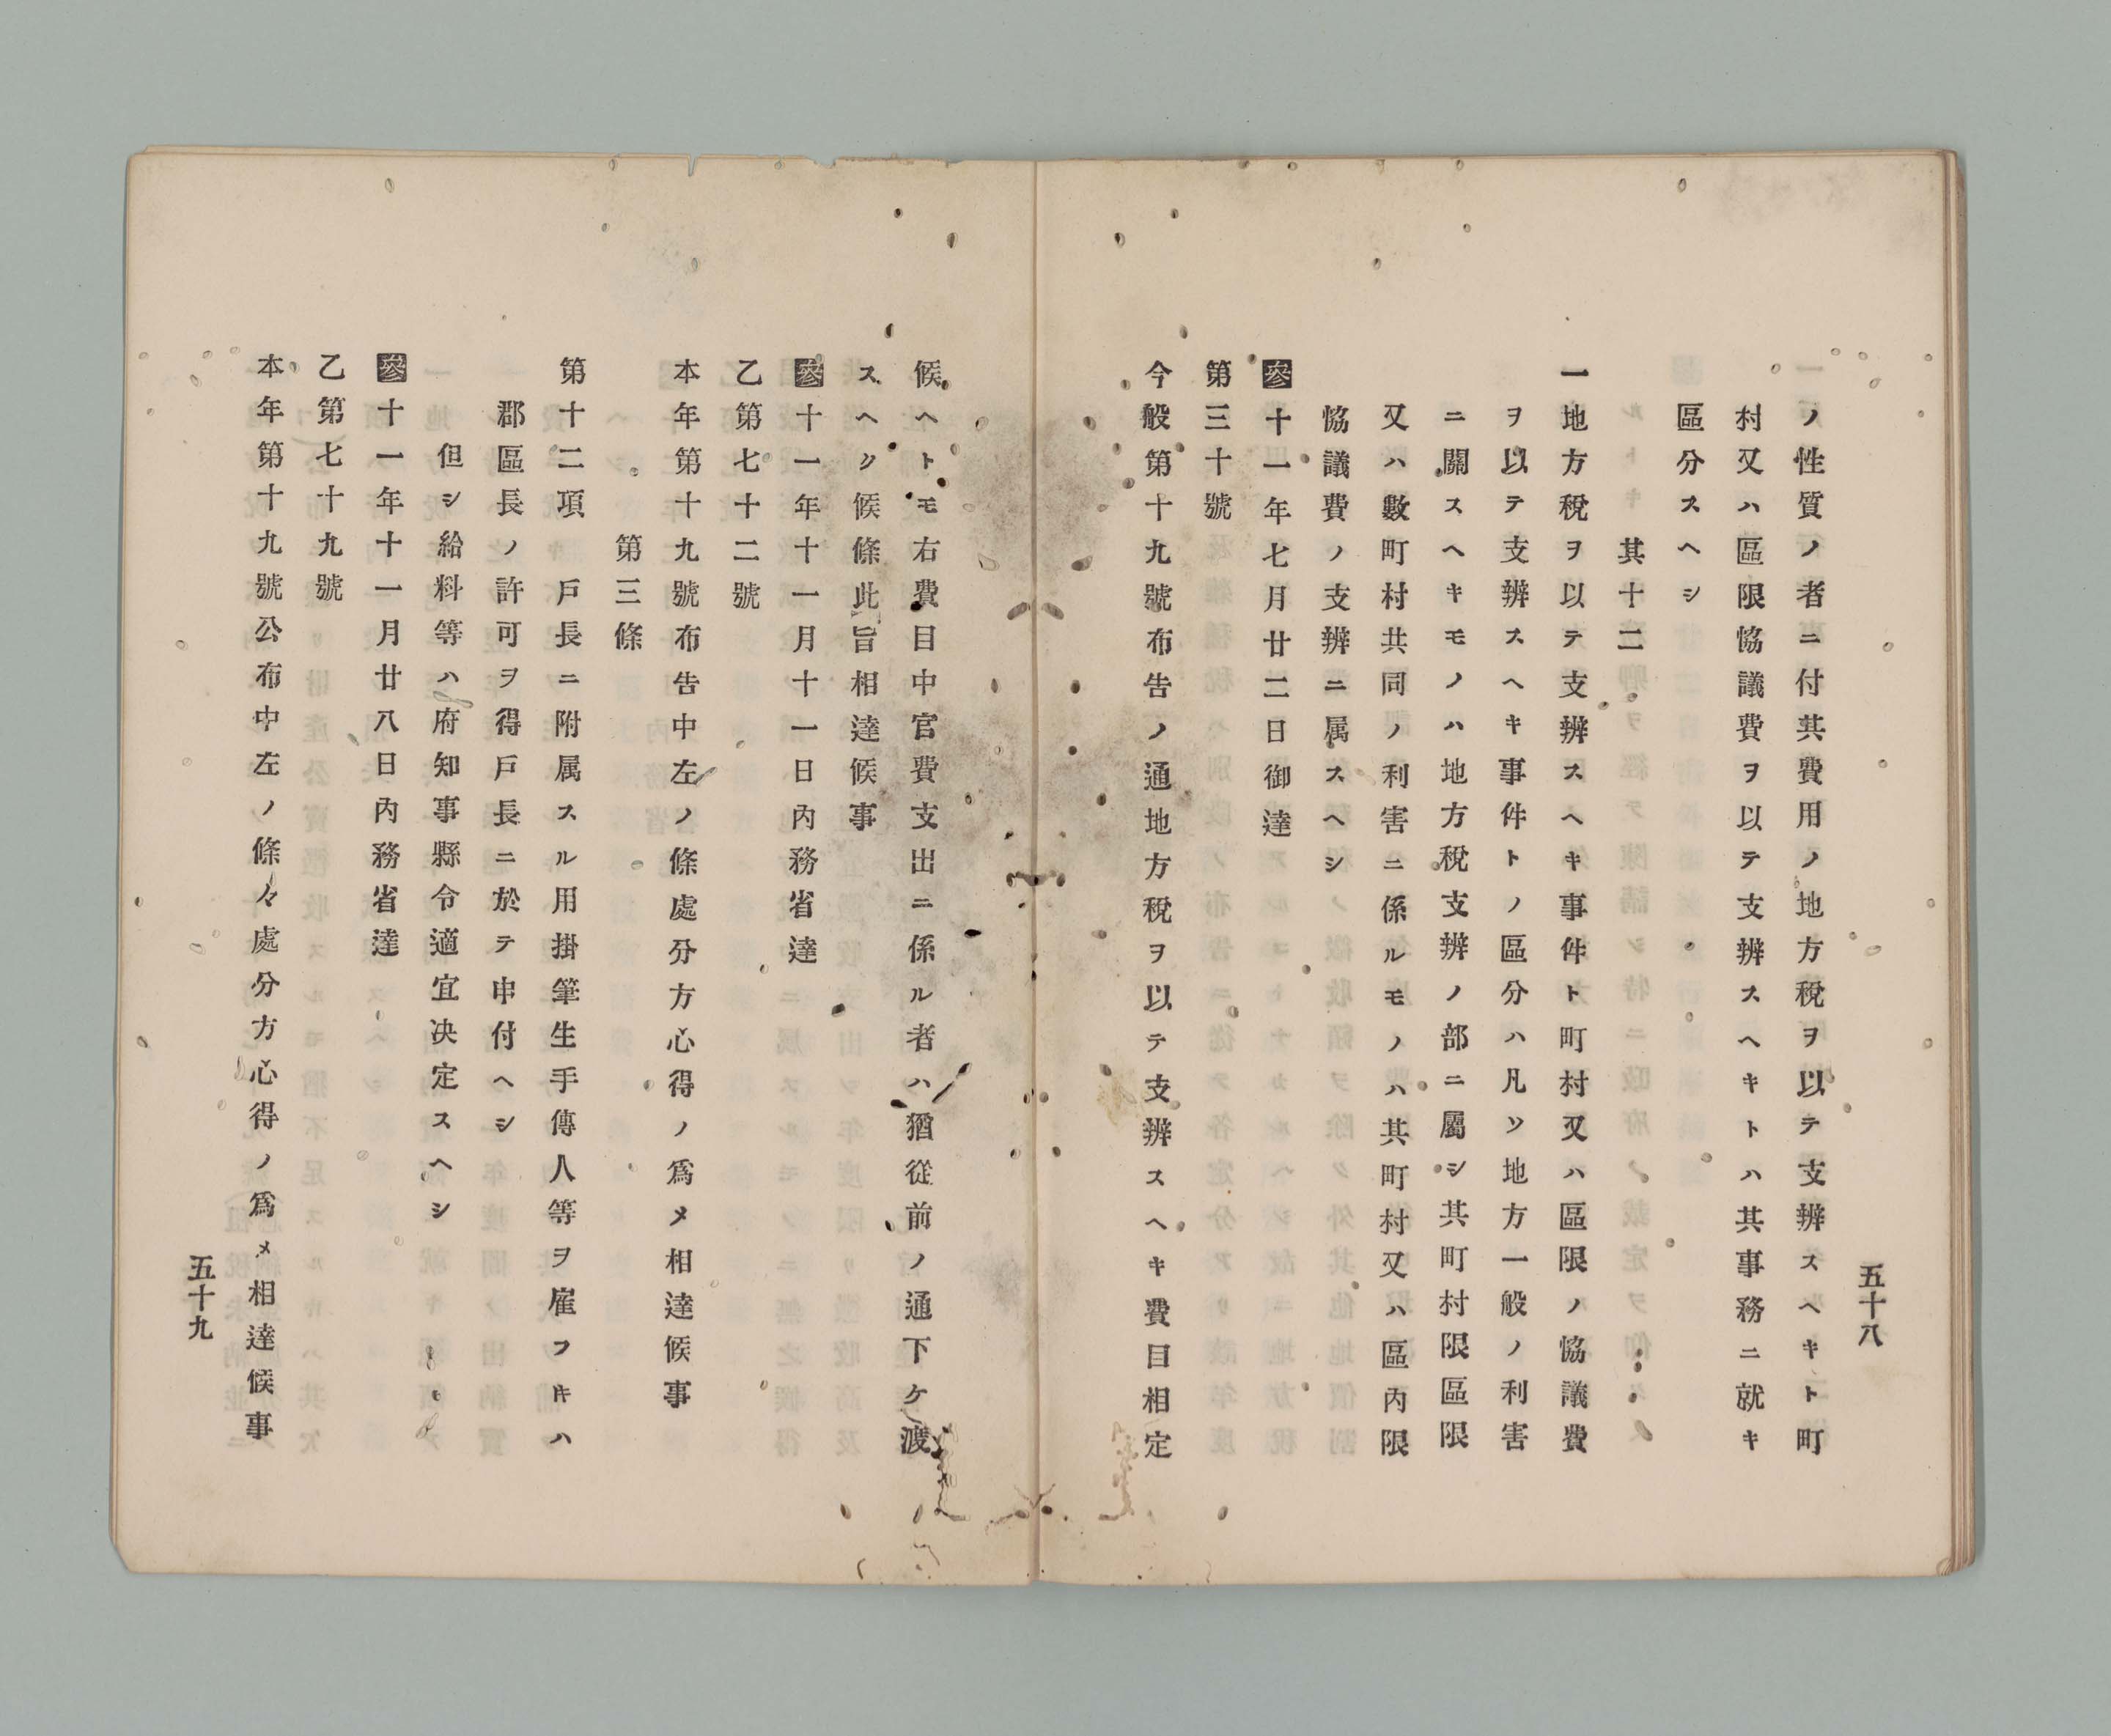 五十八
ノ性質ノ者ニ付其費用ノ地方稅ヲ以テ支辨スヘキト町
村又ハ區限協議費ヲ以テ支辨スヘキトハ其事務ニ就キ
區分スヘシ
其十二
一地方稅ヲ以テ支辨スヘキ事件ト町村又ハ區限ノ協議費
ヲ以テ支辨スヘキ事件トノ區分ハ凡ソ地方一般ノ利害
ニ關スヘキモノハ地方稅支辨ノ部ニ屬シ其町村限區限
又ハ數町村共同ノ利害ニ係ルモノハ其町村又ハ區內限
協議費ノ支辨ニ属スヘシ
參十一年七月廿二日御達
第三十號
今般第十九號布告ノ通地方稅ヲ以テ支辨スヘキ費目相定
候ヘトモ右費目中官費支出ニ係ル者ハ猶從前ノ通下ケ渡
スヘク候條此旨相達候事
參十一年十一月十一日內務省達
乙第七十二號
本年第十九號布告中左ノ條處分方心得ノ爲メ相達候事
第三條
第十二項 戶長ニ附属スル用掛筆生手傳人等ヲ雇フキハ
郡區長ノ許可ヲ得戶長ニ於テ申付ヘシ
但シ給料等ハ府知事縣令適宜決定スヘシ
參十一年十一月廿八日內務省達
乙第七十九號
本年第十九號公布中左ノ條々處分方心得ノ爲メ相達候事
五十九